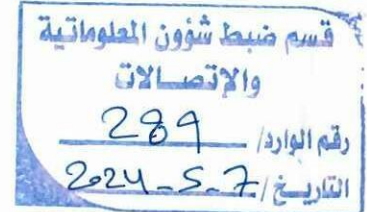 قسم ضبط شؤون المعلوماتية
والإتصالات
رقم الوارد/ 289
التاريخ/ 2024-5-7